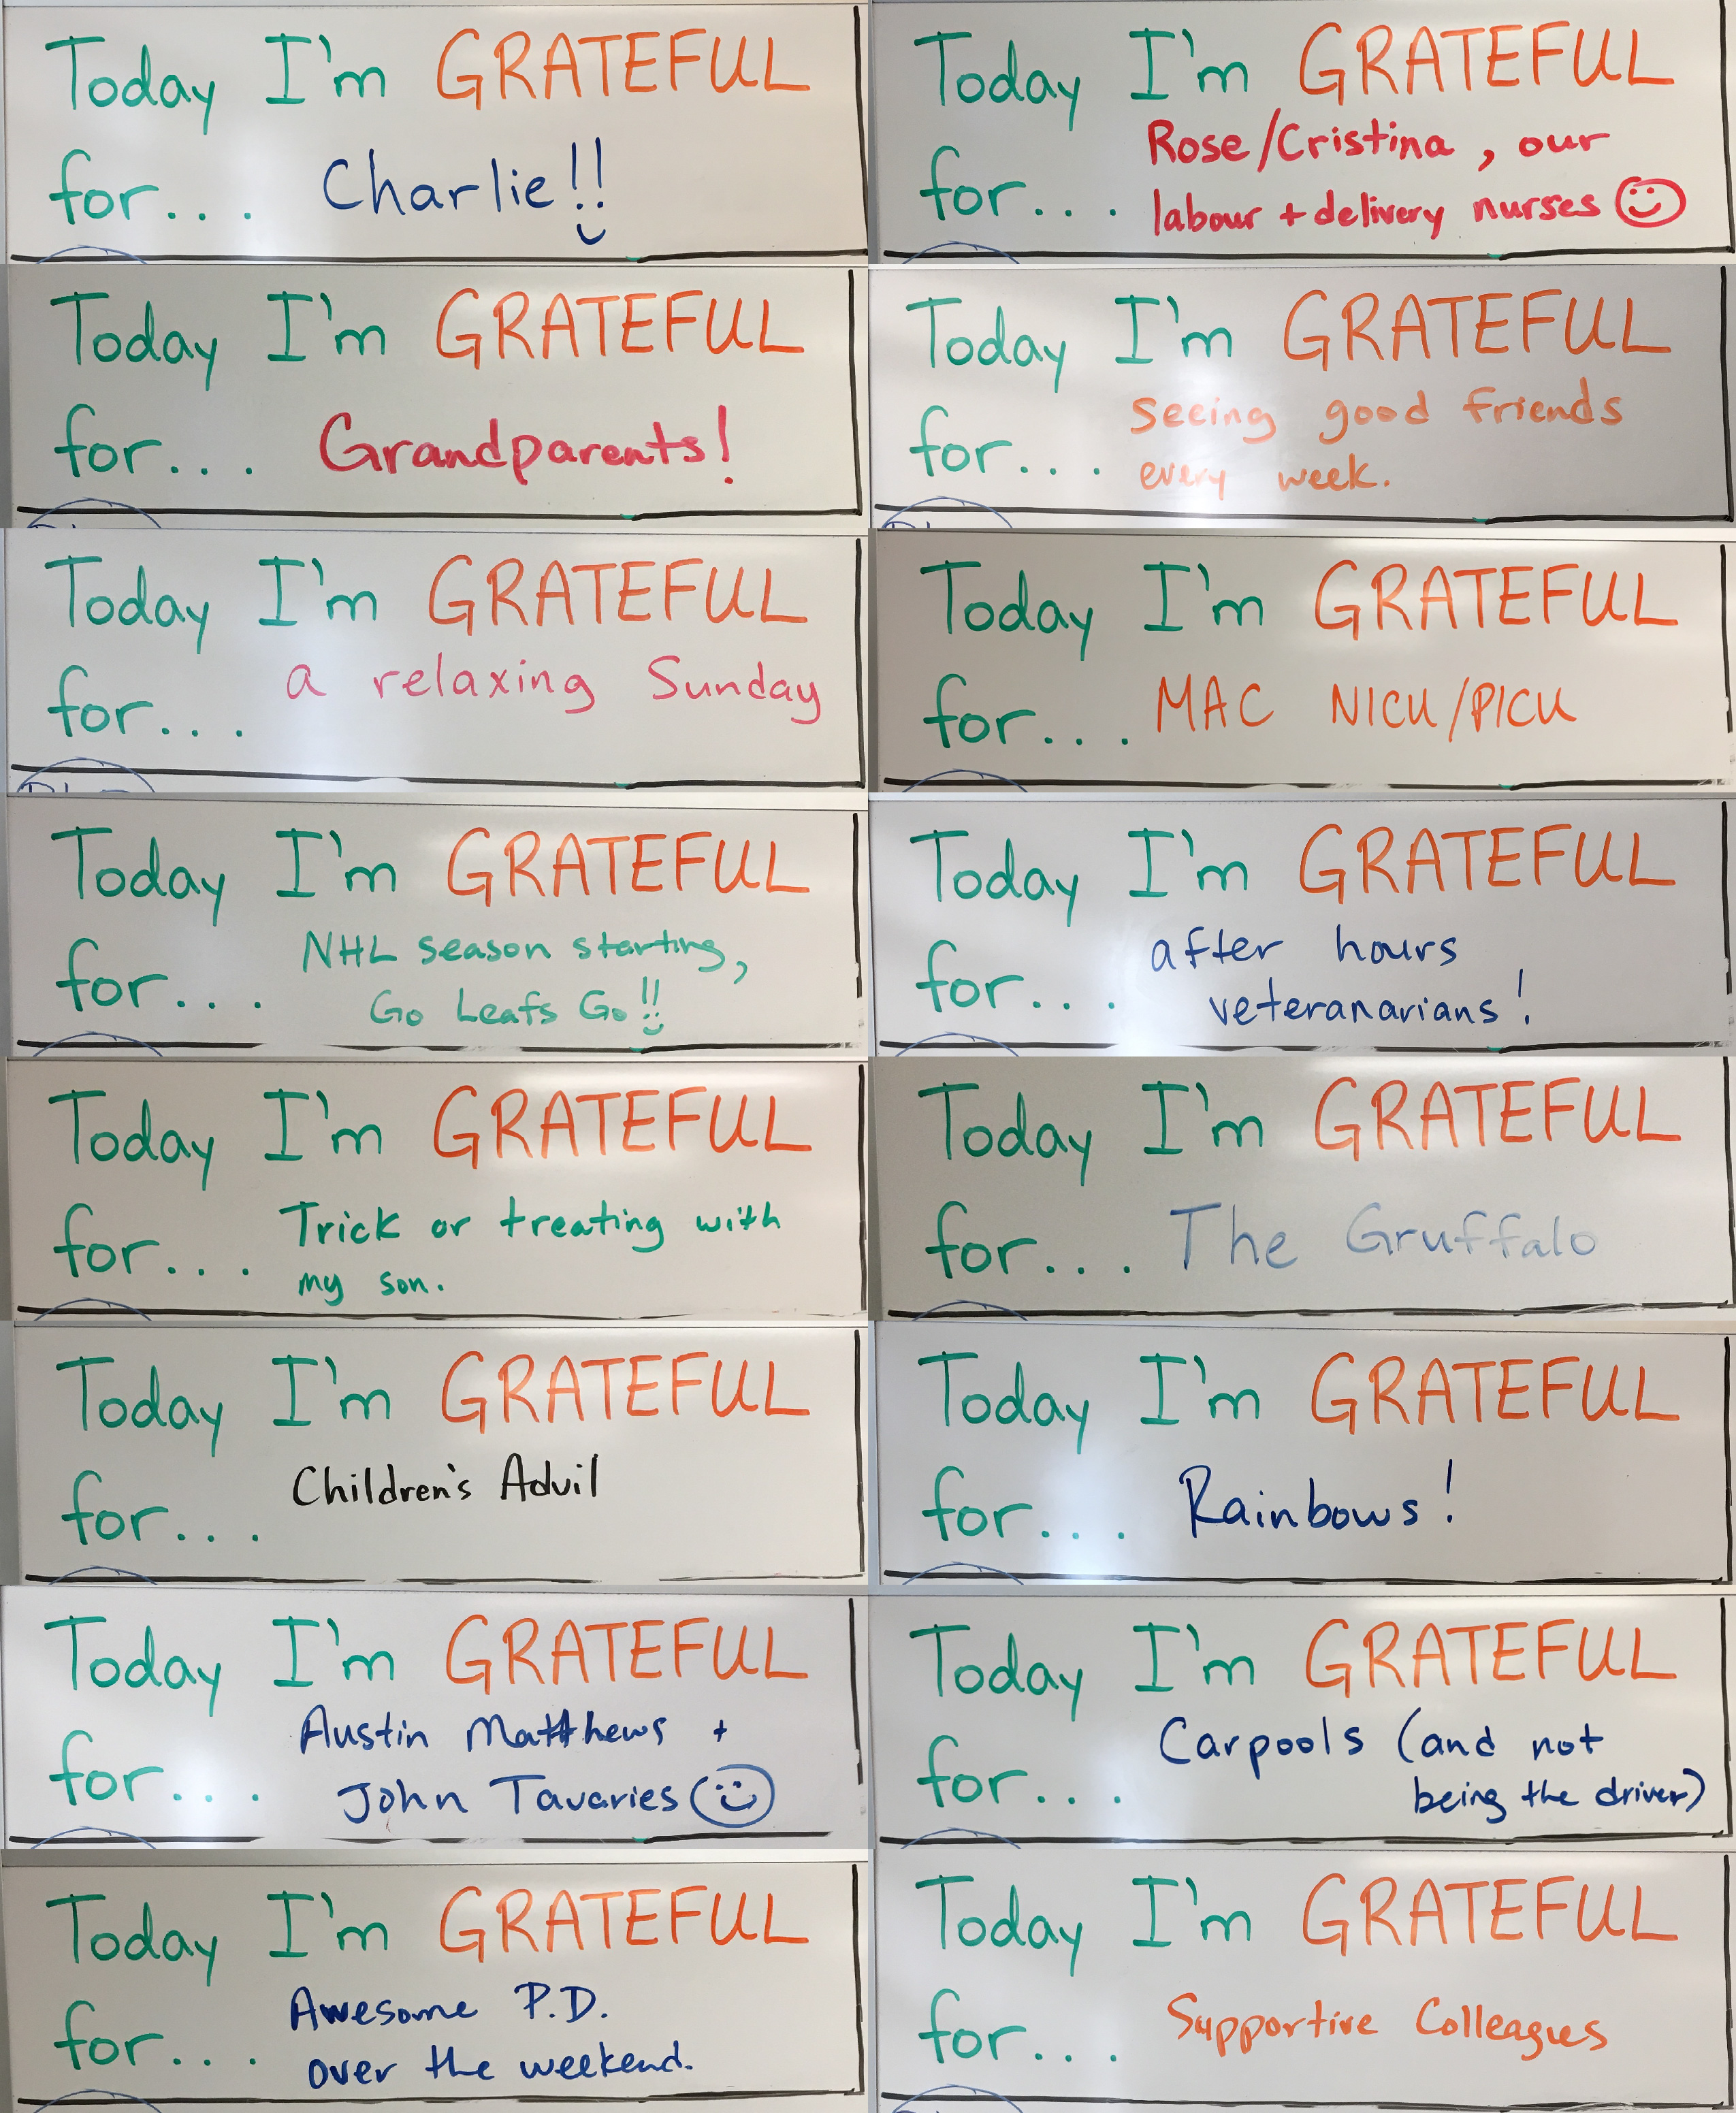 Today I'm GRATEFUL
for... Charlie!!
Today I'm GRATEFUL
for... Rose/Cristina, our
labour + delivery nurses
Today I'm GRATEFUL
for... Grandparents!
Today I'm GRATEFUL
for... seeing good friends
every week.
Today I'm GRATEFUL
for... a relaxing Sunday
Today I'm GRATEFUL
for... MAC NICU/PICU
Today I'm GRATEFUL
for... NHL season starting,
Go Leafs Go!!
Today I'm GRATEFUL
for... after hours
veteranarians!
Today I'm GRATEFUL
for... Trick or treating with
my son.
Today I'm GRATEFUL
for... The Gruffalo
Today I'm GRATEFUL
for... Children's Advil
Today I'm GRATEFUL
for... Rainbows!
Today I'm GRATEFUL
for... Austin Matthews +
John Tavaries
Today I'm GRATEFUL
for... Carpools (and not
being the driver)
Today I'm GRATEFUL
for... Awesome P.D.
over the weekend.
Today I'm GRATEFUL
for... Supportive Colleagues